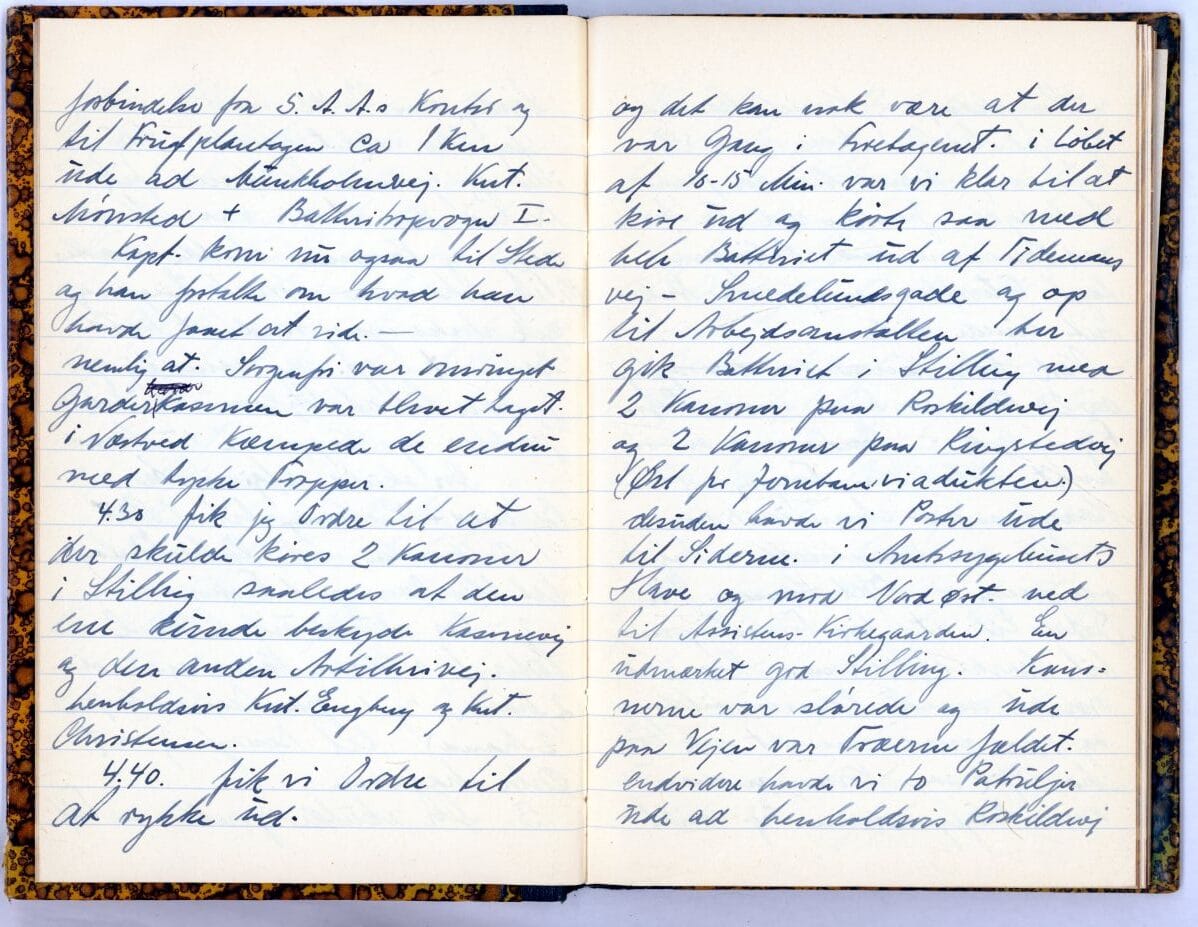 forbindelse fra S. A. A.s Kontor og
til Frugtplantagen ca 1 Km
ude ad Munkholmvej. Knt.
Mønsted + Batteritropvogn I.
Kapt. kom nu ogsaa til Stede
og han fortalte om hvad han
havde faaet at vide. —
nemlig at. Sorgenfri var omringet
Garderkasernen var blevet taget.
i Næstved Kæmpede de endnu
med tyske Tropper.
4.30 fik jeg Ordre til at
der skulde køres 2 Kanoner
i Stilling saaledes at den
ene kunde beskyde Kasernevej
og den anden Artillerivej.
henholdsvis Knt. Engberg og Knt.
Christensen.
4.40. fik vi Ordre til
at rykke ud.
og det kan nok være at der
var Gang i Foretagenet. i Løbet
af 10-15 Min. var vi klar til at
køre ud og kørte saa med
hele Batteriet ud af Tidemans
vej - Smedelundsgade og op
til Arbejdsanstalten her
gik Batteriet i Stilling med
2 Kanoner paa Roskildevej
og 2 Kanoner paa Ringstedvej
(Øst for Jernbaneviadukten.)
desuden havde vi Poster ude
til Siderne. i Amtssygehusets
Have og mod Nordøst. ved
til Assistens-Kirkegaarden. En
udmærket god Stilling. Kano-
nerne var slørede og ude
paa Vejen var Træerne fældet.
endvidere havde vi to Patruljer
ude ad henholdsvis Roskildevej